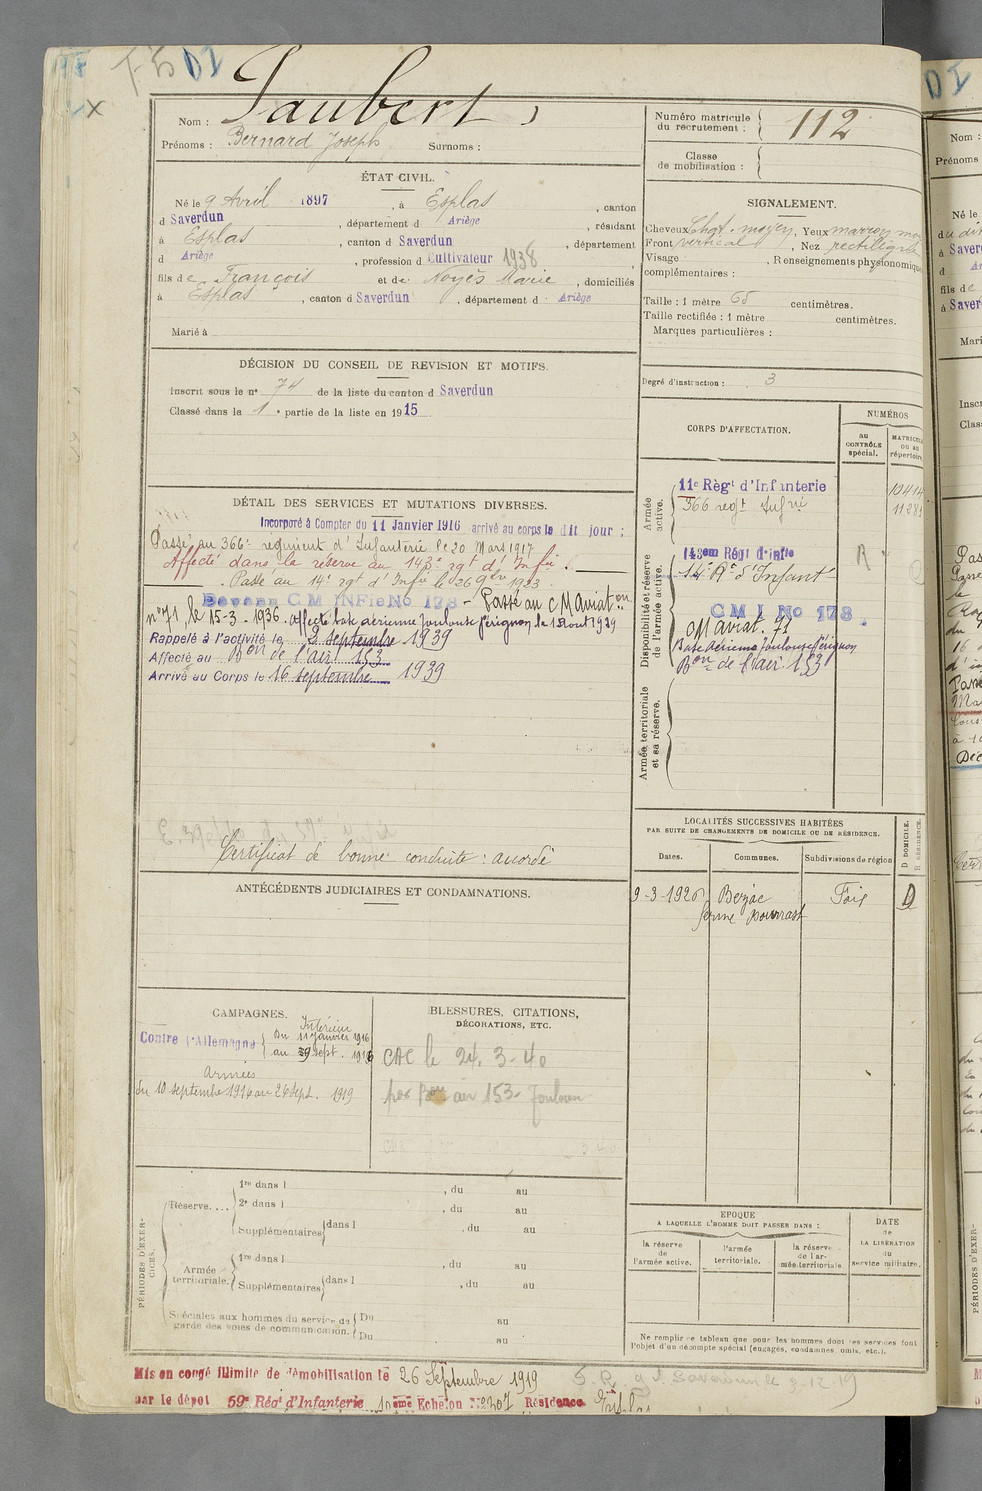 DI
Nom : Jaubert
Prénoms : Bernard Joseph Surnoms :
Numéro matricule du recrutement : 112
Classe de mobilisation :
ÉTAT CIVIL.
Né le 9 Avril 1897, à Esplas, canton
d Saverdun, département d Ariège, résidant
à Esplas, canton d Saverdun, département
d Ariège, profession d Cultivateur 1938
fils de François et de Noyès Marie, domiciliés
à Esplas, canton d Saverdun, département d Ariège
Marié à
SIGNALEMENT.
Cheveux Chat. moyen, Yeux marron
Front vertical, Nez rectiligne
Visage, Renseignements physionomiques
complémentaires :
Taille : 1 mètre 65 centimètres.
Taille rectifiée : 1 mètre centimètres.
Marques particulières :
Degré d'instruction : 3
DÉCISION DU CONSEIL DE REVISION ET MOTIFS.
Inscrit sous le n° 74 de la liste du canton d Saverdun
Classé dans la 1e partie de la liste en 1915
DÉTAIL DES SERVICES ET MUTATIONS DIVERSES.
Incorporé à Compter du 11 Janvier 1916 arrivé au corps le dit jour ;
Passé au 366e regiment d'Infanterie le 20 Mars 1917
Affecté dans la réserve au 143e rgt d'Infie.
Passé au 14e rgt d'Infie le 26 9bre 1923
Devenu C M INFie No 178 - Passé au C M Aviation
n° 71, le 15-3-1936. affecté base aérienne Toulouse Pérignon le 1 Aout 1939
Rappelé à l'activité le 2 septembre 1939
Affecté au Bon de l'air 153
Arrivé au Corps le 16 septembre 1939
Certificat de bonne conduite : accordé
CORPS D'AFFECTATION.
NUMÉROS
au CONTRÔLE spécial.
MATRICULE ou au répertoire
Armée active.
11e Régt d'Infanterie
366 regt Infie
Disponibilité et réserve de l'armée active.
143em Régt d'Infie
14e Rt d'Infant
R
C M I No 178
CM aviat. 71
Base Aérienne Toulouse Pérignon
Bon de l'air 153
Armée territoriale et sa réserve.
LOCALITÉS SUCCESSIVES HABITÉES
PAR SUITE DE CHANGEMENTS DE DOMICILE OU DE RÉSIDENCE.
Dates. Communes. Subdivisions de région
D DOMICILE. R RÉSIDENCE.
9-3-1926 Bezac Foix D
ANTÉCÉDENTS JUDICIAIRES ET CONDAMNATIONS.
CAMPAGNES.
Contre l'Allemagne
Intérieur
du 11 Janvier 1916
au 9 sept. 1916
Armées
du 10 septembre 1916 au 26 Sept. 1919
BLESSURES, CITATIONS,
DÉCORATIONS, ETC.
CAC le 24. 3-40
par Bon air 153- Toulouse
PÉRIODES D'EXERCICES.
Réserve....
1re dans l , du au
2e dans l , du au
Supplémentaires dans l , du au
Armée territoriale.
1re dans l , du au
Supplémentaires dans l , du au
Spéciales aux hommes du service de garde des voies de communication.
Du au
Du au
EPOQUE
A LAQUELLE L'HOMME DOIT PASSER DANS :
la réserve de l'armée active.
l'armée territoriale.
la réserve de l'armée territoriale
DATE de LA LIBÉRATION du service militaire.
Ne remplir ce tableau que pour les hommes dont les services font
l'objet d'un décompte spécial (engagés, condamnés, omis, etc.).
Mis en congé illimité de démobilisation le 26 Septembre 1919
par le dépot 59e Régt d'Infanterie 10 ème Echelon N° 307 Résidence Esplas